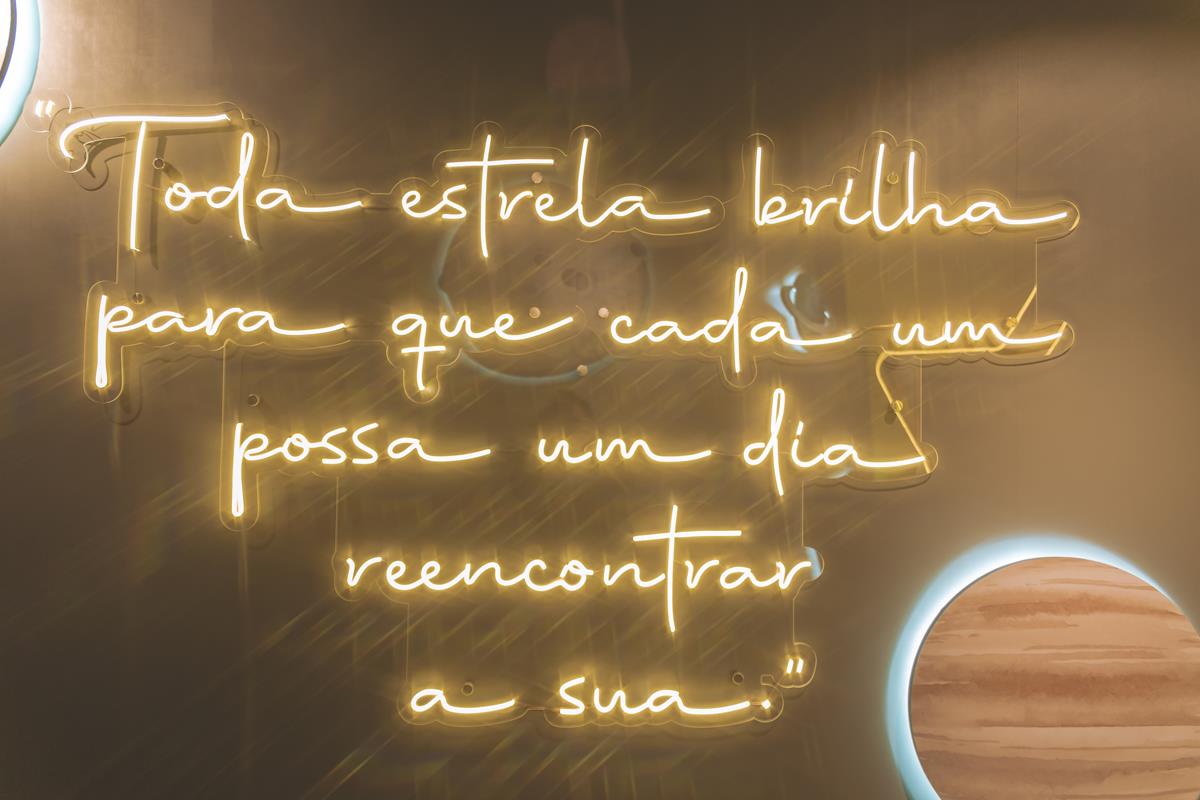 "Toda estrela brilha
para que cada um
possa um dia
reencontrar
a sua."